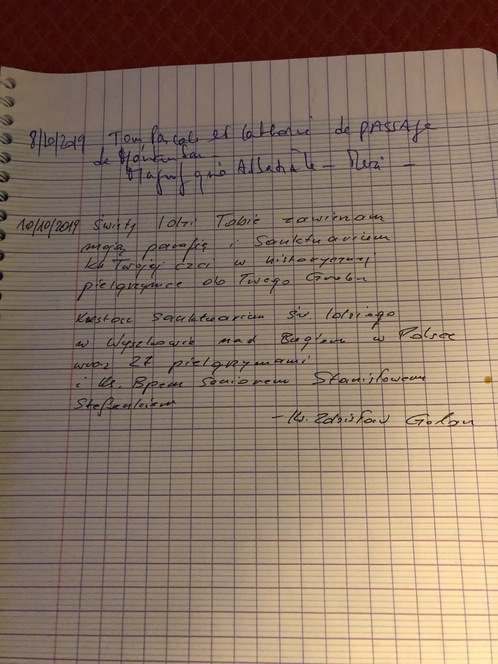 8/10/2019 Tom Pascale et Catherine de PASSAGE
de
Magnifique - Merci -
10/10/2019 Święty Idzi Tobie zawierzam
moją parafię i Sanktuarium
ku Twojej czci w historycznej
pielgrzymce do Twego Grobu
Kustosz Sanktuarium św. Idziego
w Wyszkowie nad Bugiem w Polsce
wraz 27 pielgrzymami
i Ks. Bpem Seniorem Stanisławem
Stefankiem
- Ks. Zdzisław Golan